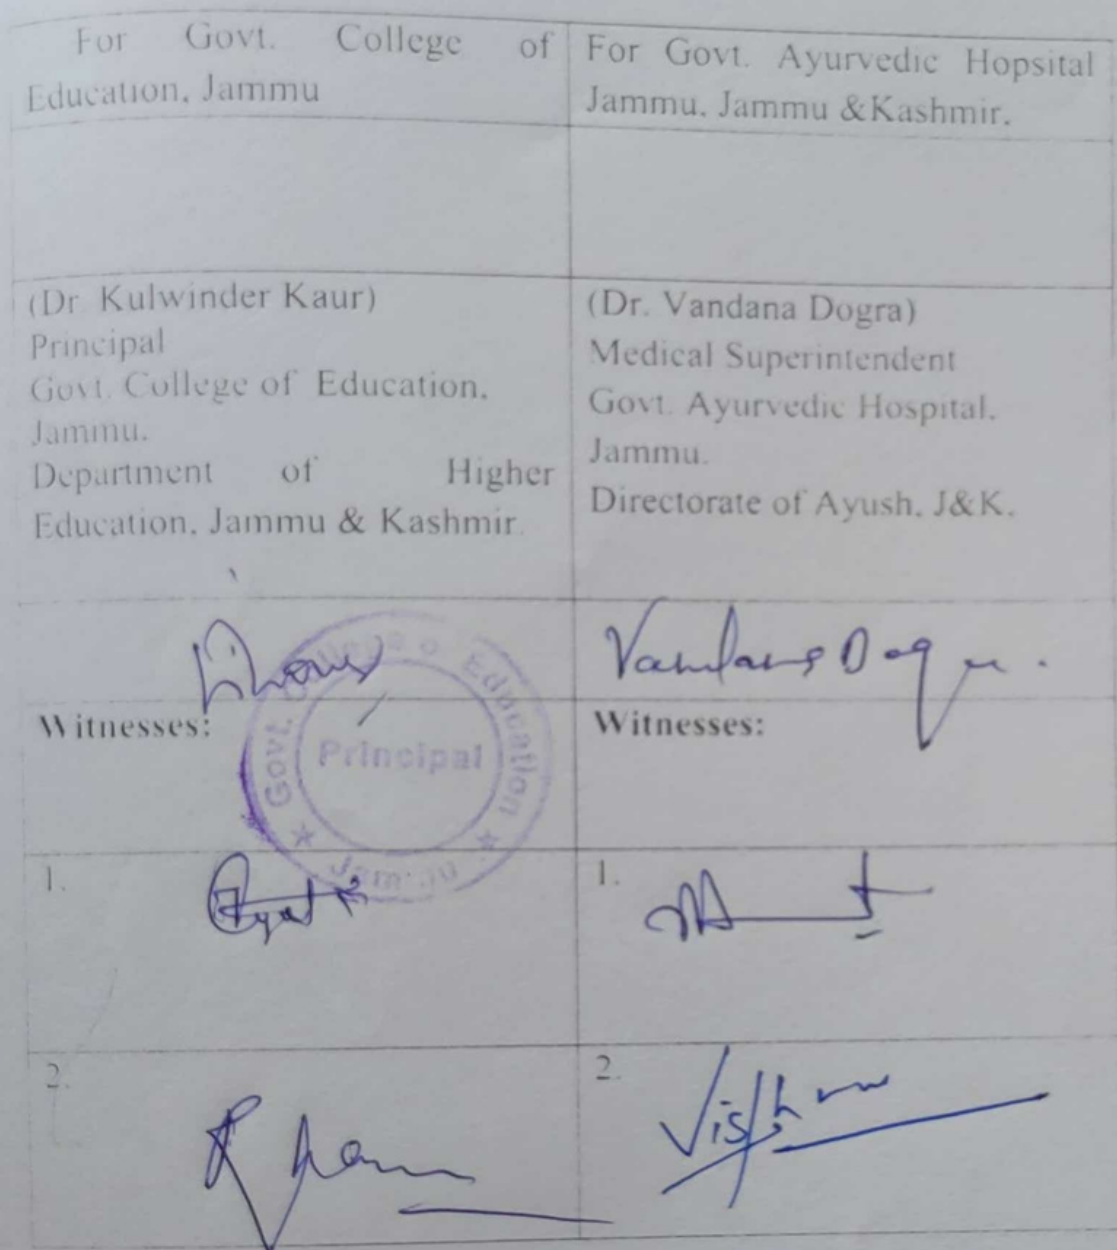 For Govt. College of
Education, Jammu
For Govt. Ayurvedic Hopsital
Jammu, Jammu &Kashmir.
(Dr. Kulwinder Kaur)
Principal
Govt. College of Education,
Jammu.
Department of Higher
Education, Jammu & Kashmir.
(Dr. Vandana Dogra)
Medical Superintendent
Govt. Ayurvedic Hospital,
Jammu.
Directorate of Ayush, J&K.
Vandana Dogra.
Govt. College o Education
Principal
Witnesses:
Witnesses:
1.
1.
2.
2.